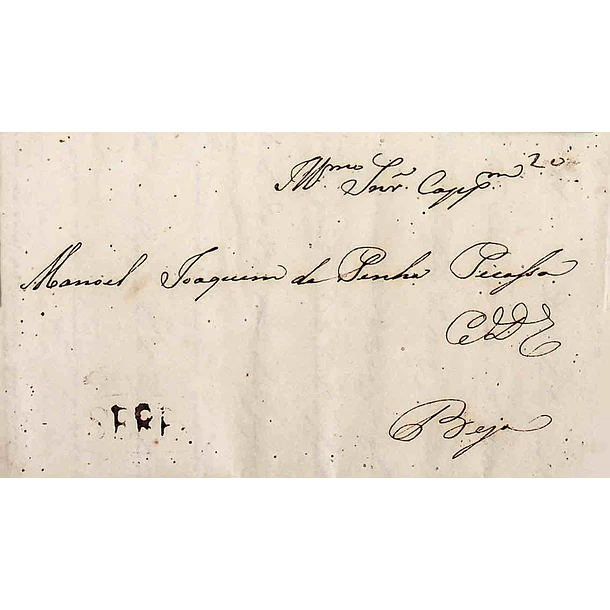 Illmo Snr. Cappm 20
Manoel Joaquim da Penha Picassa
Beja